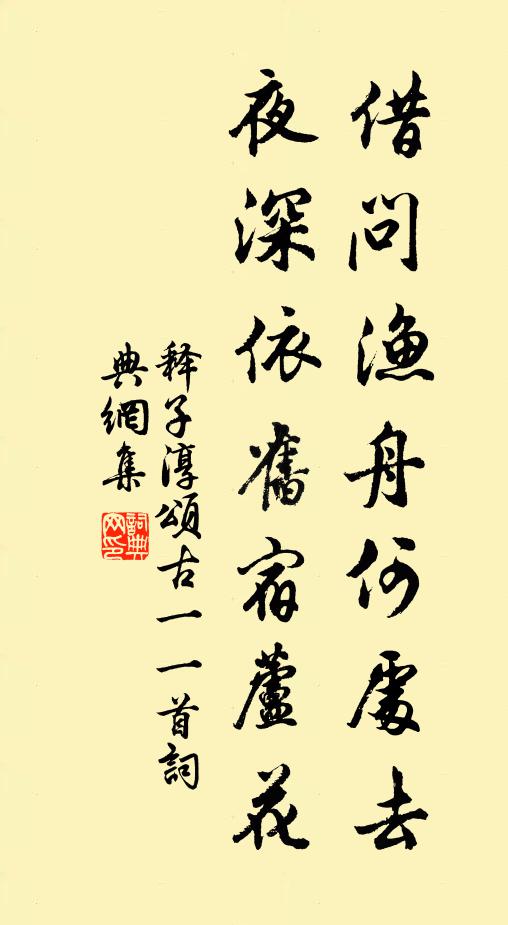 借問漁舟何處去
夜深依舊宿蘆花
釋子淳頌古一一首詞
典網集
詞典
网印